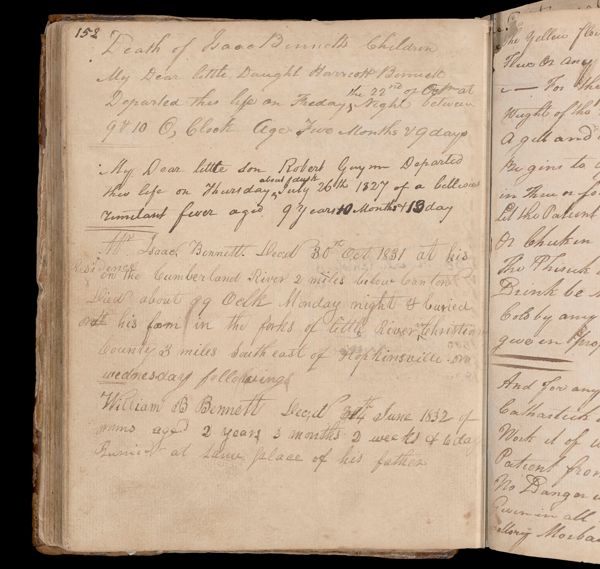 152
Death of Isaac Bennetts Children
My Dear little Daught Harriott Bennett
Departed this life on Freday the 22nd of Octbr at Night between
9 & 10 O, Clock Age Two Months & 9 days
My Dear little son Robert Guynn Departed
this life on Thursday about dusk July 26th 1827 of a
fever aged 9 years 10 Months & 13 day
Mr. Isaac Bennett. Decd 30th Oct 1831 at his
Residence on the Cumberland River 2 miles below Canton
Died about Oclk Monday night & buried
at his farm in the forks of little River Christian
County 3 miles South east of Hopkinsville on
wednesday following
William B Bennett Decd June 1832 of
aged 2 years 3 months 2 weeks & 6 day
Buried at same place of his father
The yellow
Thee Or any
For the
Wight of the
A gill and
Begins to
in Three or fo
let the Patient
Or Chicken
The Physick
Drink be
Cold by any
give in
And for any
Catharticks
Work it of
Patient from
No Danger
Given in all